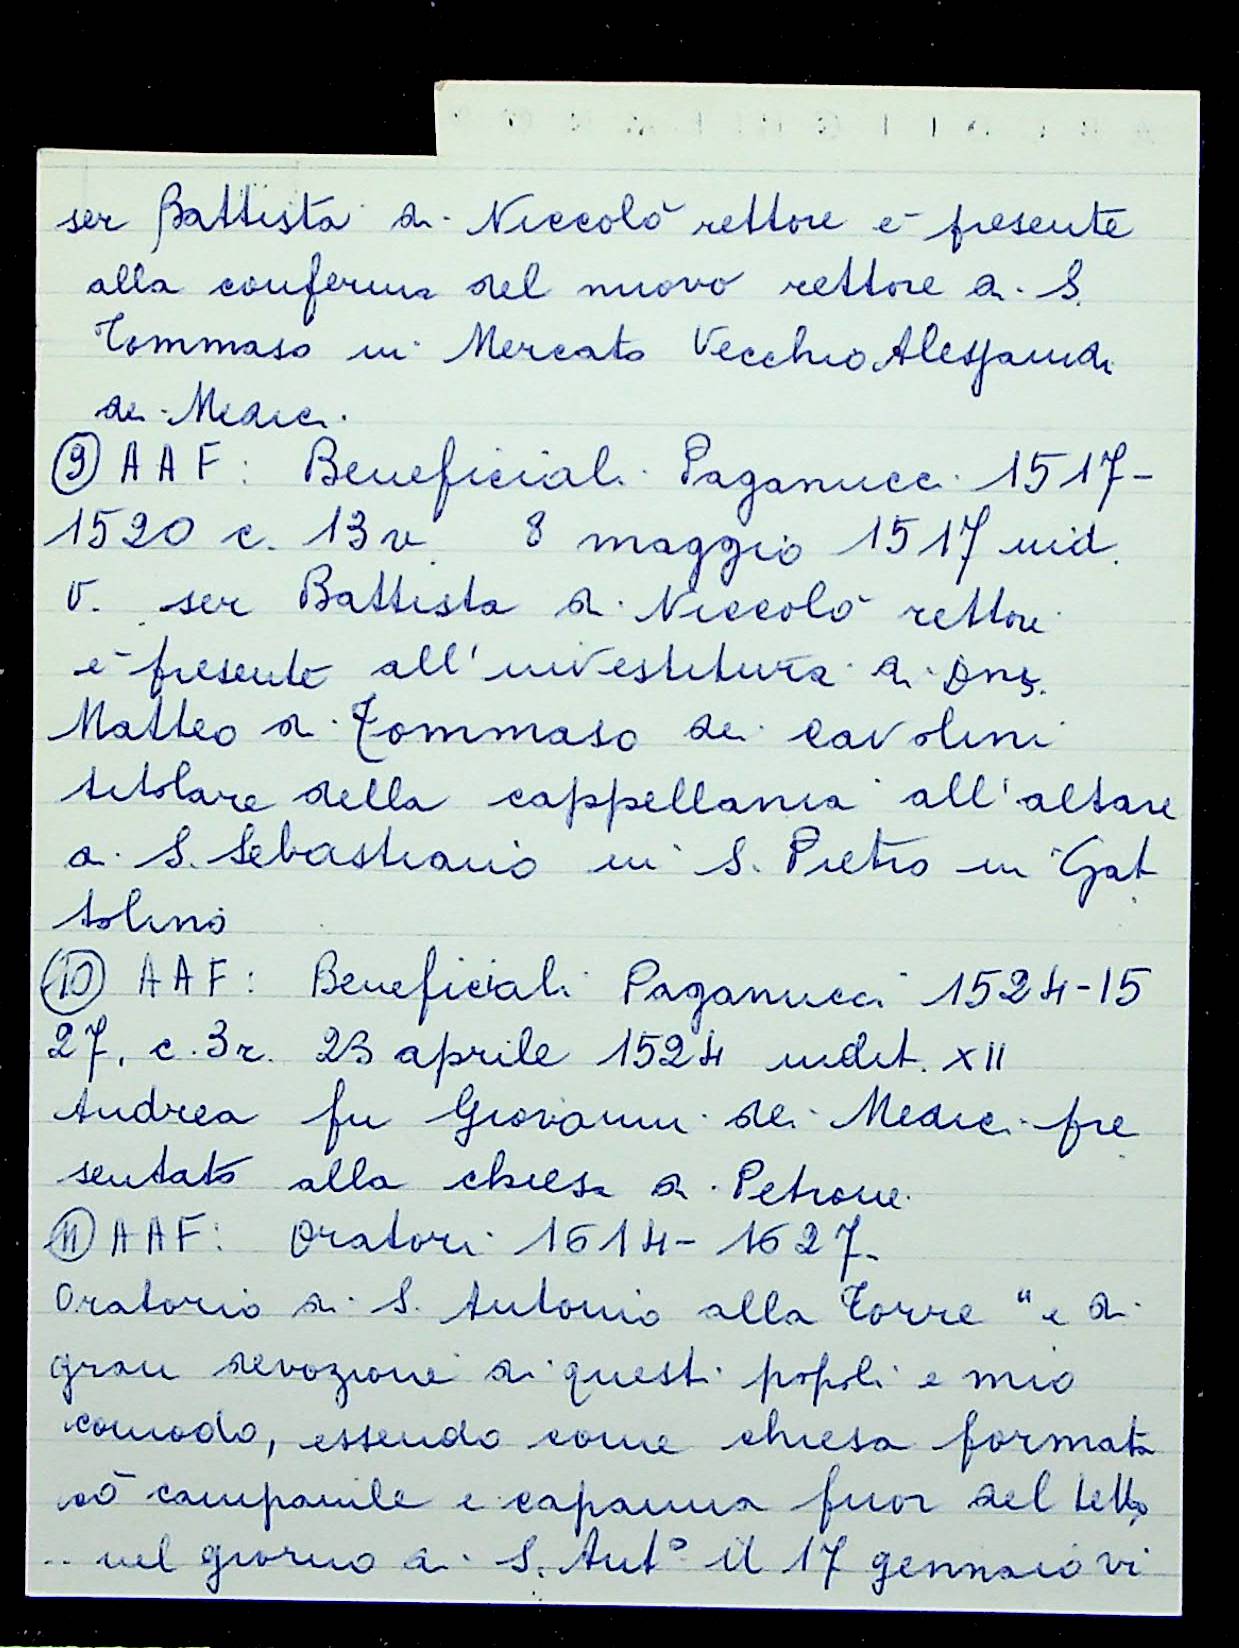 ser Battista di Niccolò rettore è presente
alla conferma del nuovo rettore di S.
Tommaso in Mercato Vecchio Alessandr
dei Medici.
⑨ AAF: Beneficiali Paganucci 1517-
1520 c. 13v 8 maggio 1517 ind.
V. ser Battista di Niccolò rettore
è presente all'investitura di Dns.
Matteo di Tommaso dei Cavolini
titolare della cappellania all'altare
di S. Sebastiano in S. Pietro in Gat
tolino
⑩ AAF: Beneficiali Paganucci 1524-15
27, c. 3r. 23 aprile 1524 indit. XII
Andrea fu Giovanni dei Medici pre
sentato alla chiesa di Petrone.
⑪ AAF: Oratori 1614-1627.
Oratorio di S. Antonio alla Torre "è di
gran devozione di questi popoli e mio
comodo, essendo come chiesa formata
cō campanile e capanna fuor del tetto
.. nel giorno di S. Antº il 17 gennaio vi